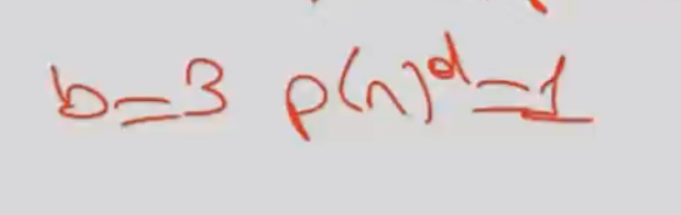 b=3 p(n)^d=1